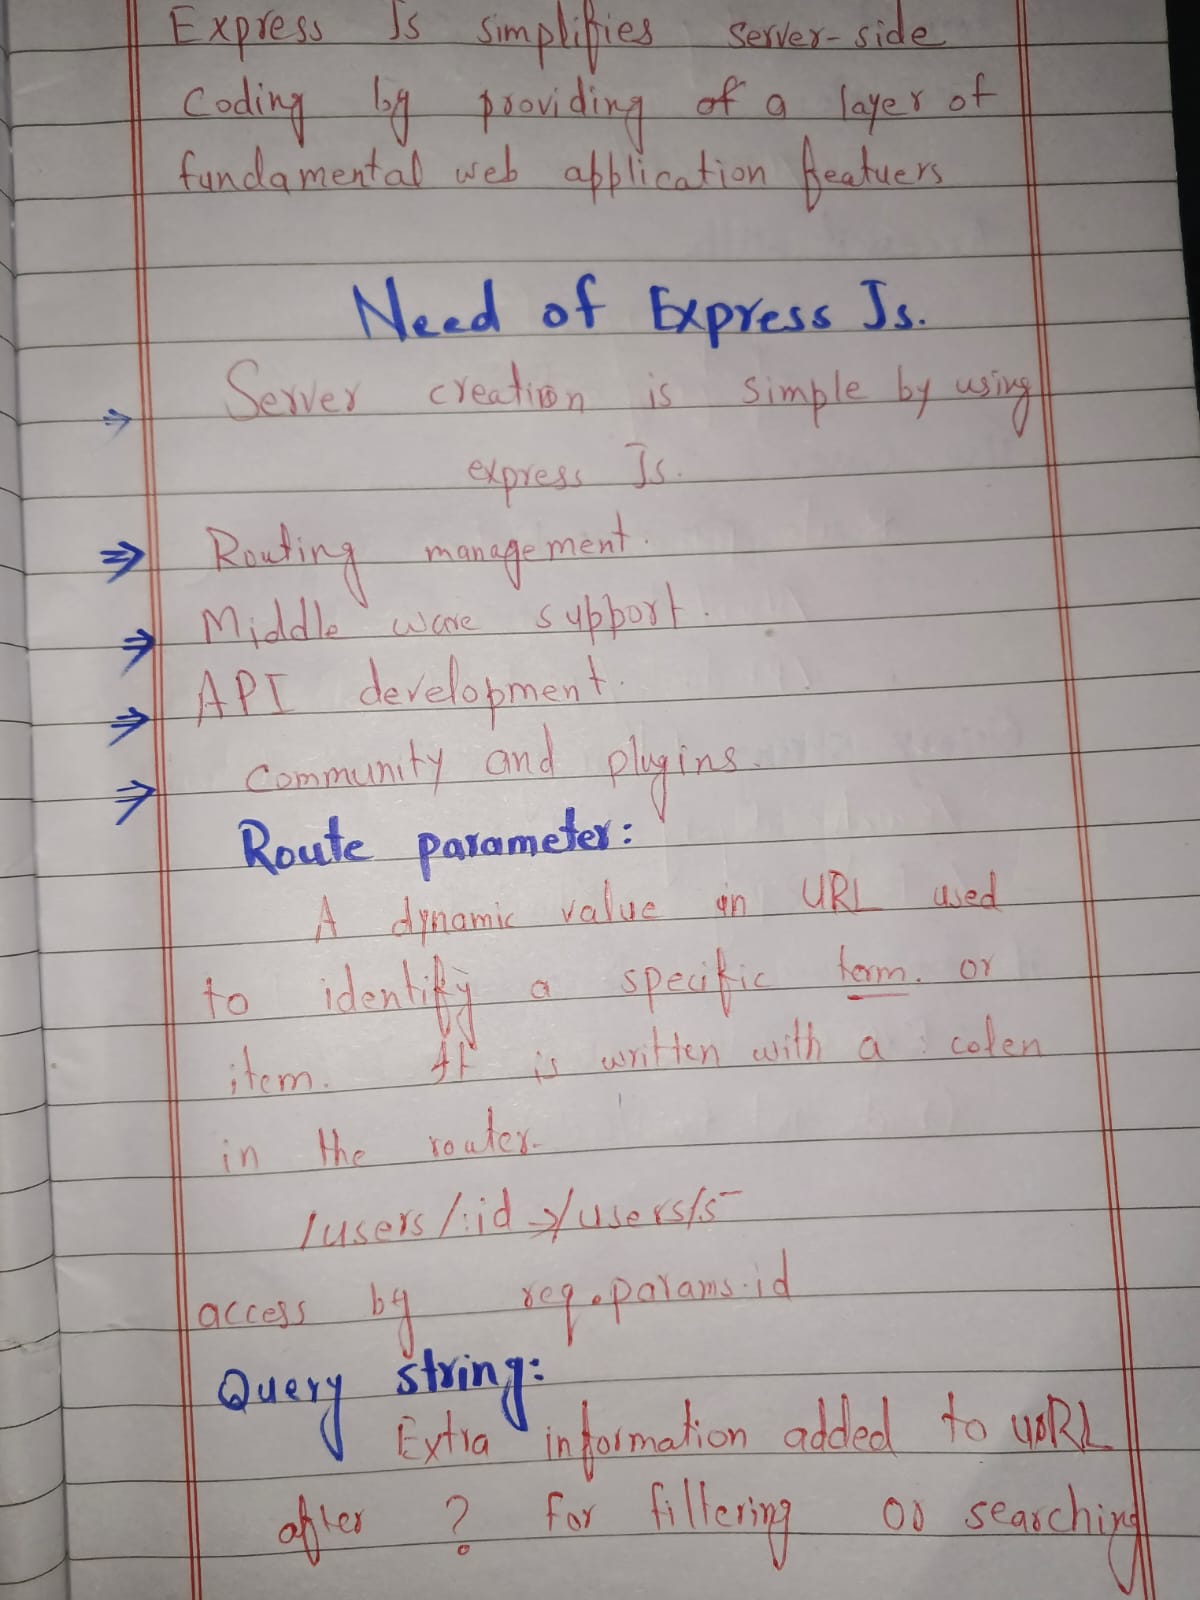 Express Js simplifies server-side
Coding by providing of a layer of
fundamental web application featuers
Need of Express Js.
⇒ Server creation is simple by using
express Js.
⇒ Routing management.
⇒ Middle ware support.
⇒ API development.
⇒ Community and plugins.
Route parameter:
A dynamic value in URL used
to identify a specific term. or
item. It is written with a : colen
in the router.
/users/:id → /users/5
access by req.params.id
Query string:
Extra information added to URL
after ? for filtering or searching